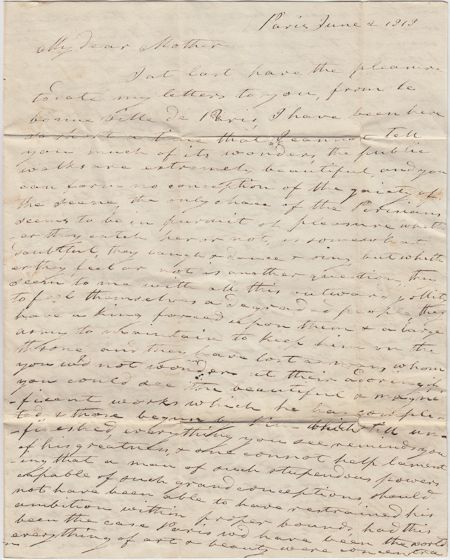 Paris June 2 1818
My dear Mother
I at last have the pleasure
to date my letters to you, from la
bonne Ville de Paris, I have been here
so short a time that I cannot tell
you much of its wonders, the public
walks are extremely beautiful, and you
can form no conception of the gaiety of
the scene, the only chace of the Parisians
seems to be in pursuit of pleasure, wheth
er they catch her or not, is somewhat
doubtful, they laugh & dance & sing but wheth
er they feel or not is another question, they
seem to me with all this outward
to feel themselves a degraded people they
have a king forced upon them & a large
army to maintain to keep him on the
throne, and they have lost a man, whom
you wd not wonder at their adoring if
you could see the beautiful & magni
ficent works which he has comple
ted, & those begun which still un
finished, everything you see reminds you
of his greatness, & one cannot help lament
ing that a man of such stupendous powers
capable of such grand conceptions, should
not have been able to have restrained his
ambition within proper bounds, had this
been the case Paris wd have been the world
everything of art & beauty were